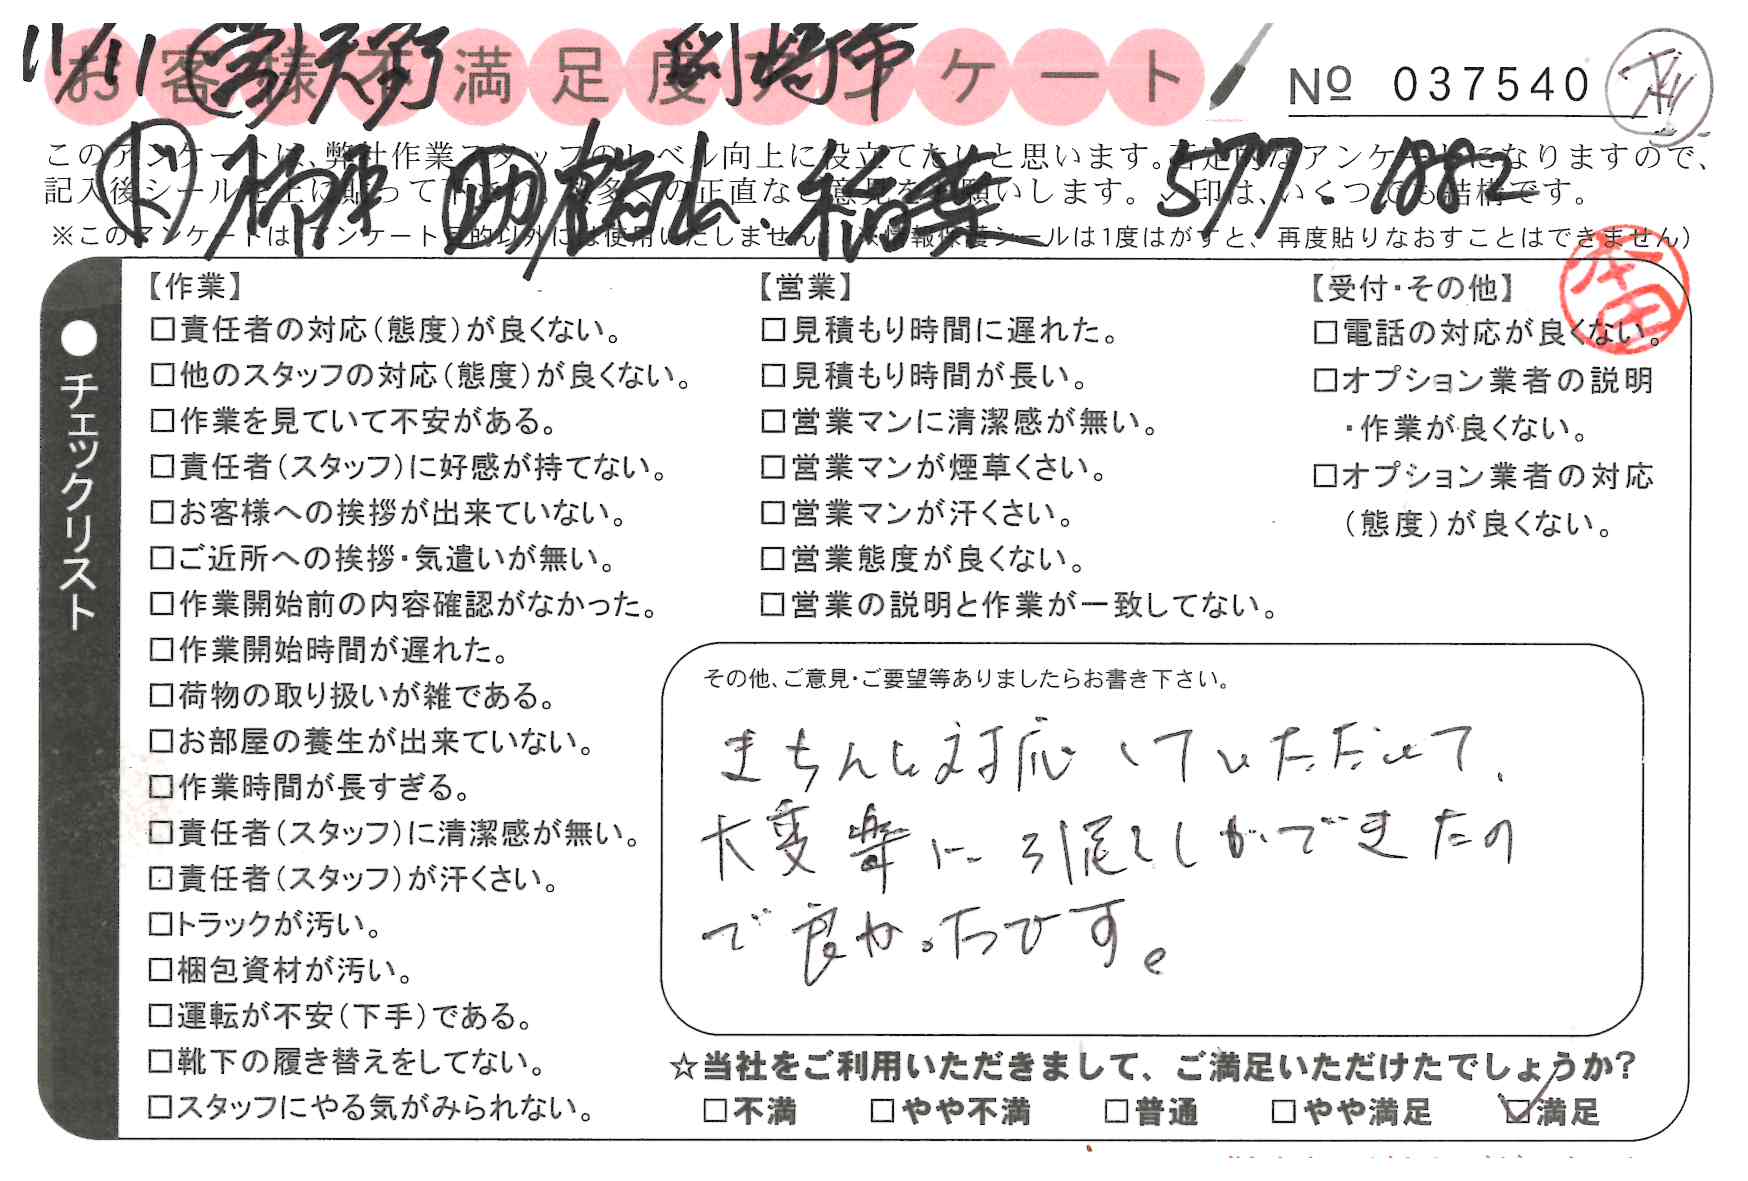 11/11 営 天野
お客様不満足度アンケート
No 037540
このアンケートは、弊社作業スタッフのレベル向上に役立てたいと思います。否定的なアンケートになりますので、
記入後シールを上に貼って下さい。数多くの正直なご意見をお願いします。✓印は、いくつでも結構です。
ド 助 577・1882
※このアンケートはアンケート目的以外には使用いたしません。(※情報保護シールは1度はがすと、再度貼りなおすことはできません)
本田
●チェックリスト
【作業】
□責任者の対応(態度)が良くない。
□他のスタッフの対応(態度)が良くない。
□作業を見ていて不安がある。
□責任者(スタッフ)に好感が持てない。
□お客様への挨拶が出来ていない。
□ご近所への挨拶・気遣いが無い。
□作業開始前の内容確認がなかった。
□作業開始時間が遅れた。
□荷物の取り扱いが雑である。
□お部屋の養生が出来ていない。
□作業時間が長すぎる。
□責任者(スタッフ)に清潔感が無い。
□責任者(スタッフ)が汗くさい。
□トラックが汚い。
□梱包資材が汚い。
□運転が不安(下手)である。
□靴下の履き替えをしてない。
□スタッフにやる気がみられない。
【営業】
□見積もり時間に遅れた。
□見積もり時間が長い。
□営業マンに清潔感が無い。
□営業マンが煙草くさい。
□営業マンが汗くさい。
□営業態度が良くない。
□営業の説明と作業が一致してない。
【受付・その他】
□電話の対応が良くない。
□オプション業者の説明
・作業が良くない。
□オプション業者の対応
(態度)が良くない。
その他、ご意見・ご要望等ありましたらお書き下さい。
きちんと対応していただけて、
大変楽に引越しができたの
で良かったです。
☆当社をご利用いただきまして、ご満足いただけたでしょうか?
□不満 □やや不満 □普通 □やや満足 ☑満足